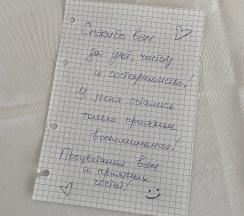 Спасибо вам
за уют, чистоту
и гостеприимство!
У меня остались
только приятные
воспоминания!
Процветания вам
гостей!